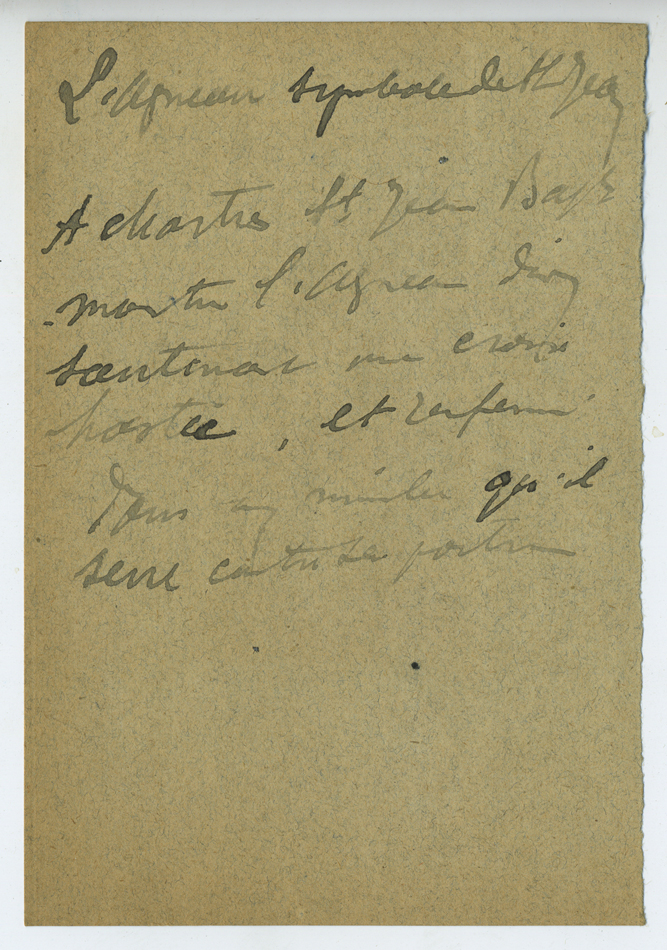 L'Agneau symbole de St Jean
A Chartres St Jean Bapt
montre l'Agneau divin
soutenant une croix
hostie, et renfermé
dans un nimbe qu'il
serre contre sa poitrine